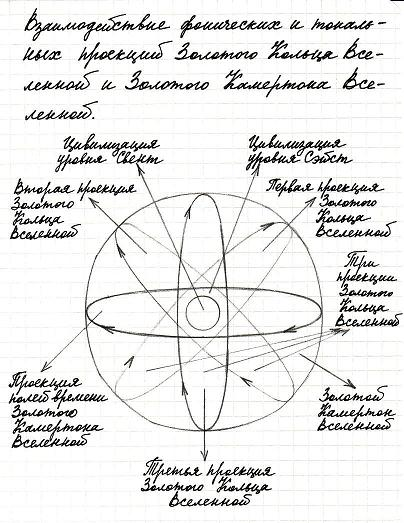 Взаимодействие фонических и тональ-
ных проекций Золотого Кольца Все-
ленной и Золотого Камертона Все-
ленной.
Цивилизация
уровня Свент
Цивилизация
уровня Сэйст
Вторая проекция
Золотого
Кольца
Вселенной
Первая проекция
Золотого
Кольца
Вселенной
Три
проекции
Золотого
Кольца
Вселенной
Проекция
полей времени
Золотого
Камертона
Вселенной
Золотой
Камертон
Вселенной
Третья проекция
Золотого Кольца
Вселенной